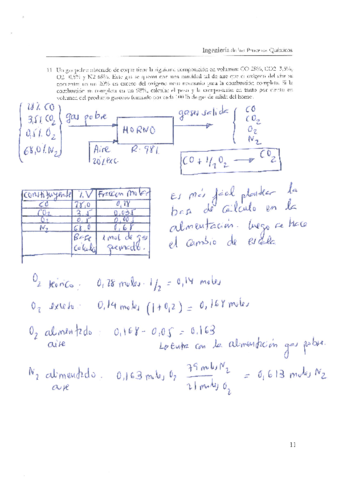 Ingeniería de los Procesos Químicos
11. Un gas pobre obtenido de coque tiene la siguiente composición en volumen: CO 28%, CO2 3,5%,
O2 0,5% y N2 68%. Este gas se quema con una cantidad tal de aire que el oxígeno del aire se
encuentra en un 20% en exceso del oxígeno neto necesario para la combustión completa. Si la
combustión se completa en un 98%, calcular el peso y la composición en tanto por ciento en
volumen del producto gaseoso formado por cada 100 lb de gas de salida del horno.
28% CO
3,5% CO2
0,5% O2
68,0% N2
gas pobre
HORNO
gases salida
CO
CO2
O2
N2
Aire
20% exc
R = 98%
CO + 1/2 O2 → CO2
Constituyente % V Fracción Molar
CO 28,0 0,28
CO2 3.5 0,035
O2 0.5
N2 68,0 0,68
Base calculo 1 mol de gas quemado.
es más fácil plantear la
base de cálculo en la
alimentación. Luego se hace
el cambio de escala
O2 teórico: 0,28 moles · 1/2 = 0,14 moles
O2 exceso: 0,14 moles (1+0,2) = 0,168 moles
O2 alimentado: 0,168 - 0,05 = 0,163
aire
Lo entra con la alimentación gas pobre.
N2 alimentado: 0,163 moles O2 79 moles N2 / 21 moles O2 = 0,613 moles N2
aire
11